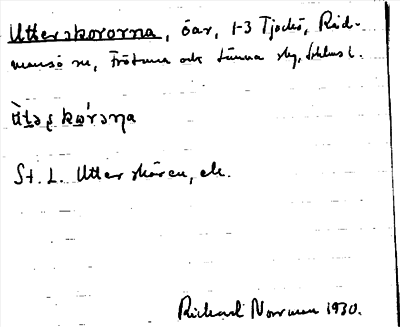 Utterskororna, öar, 1-3 Tjockö, Råd-
mansö sn, Frötuna och Länna skg, Sthlms l.
St. L. Utterskären, ek.
Richard Norrman 1930.